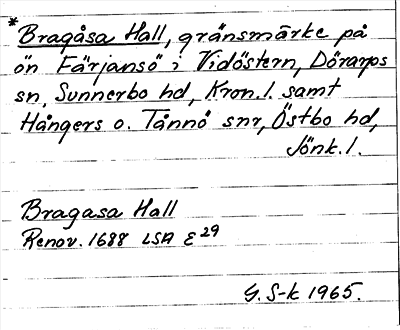 *Bragåsa Hall, gränsmärke på
ön Färjansö i Vidöstern, Dörarps
sn, Sunnerbo hd, Kron.l. samt
Hångers o. Tånnö snr, Östbo hd,
Jönk.l.
Bragasa Hall
Renov. 1688 LSA E29
G. S-k 1965.